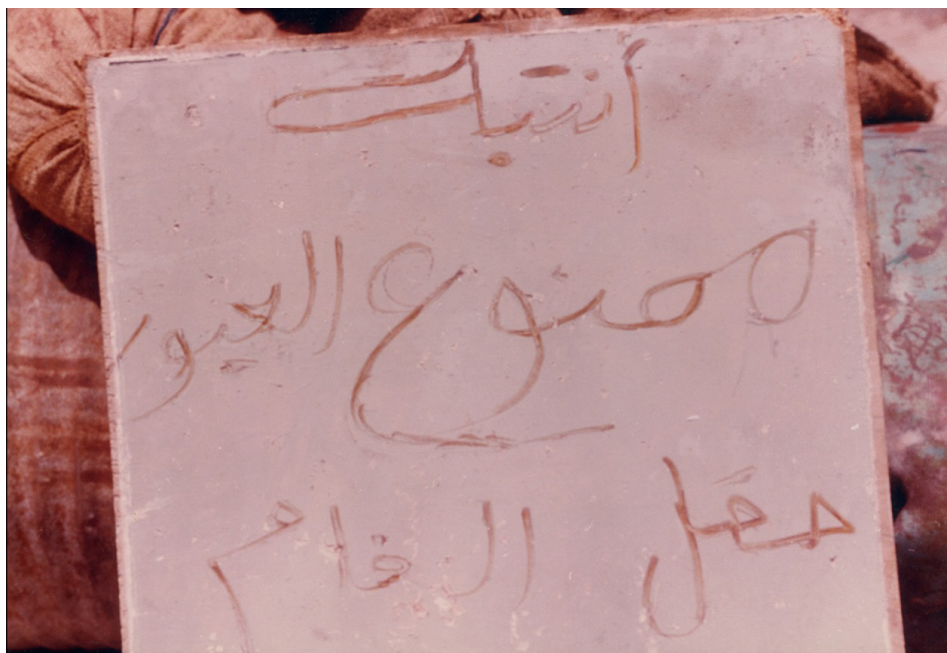 أنتبه
ممنوع العبور
حقل الغام